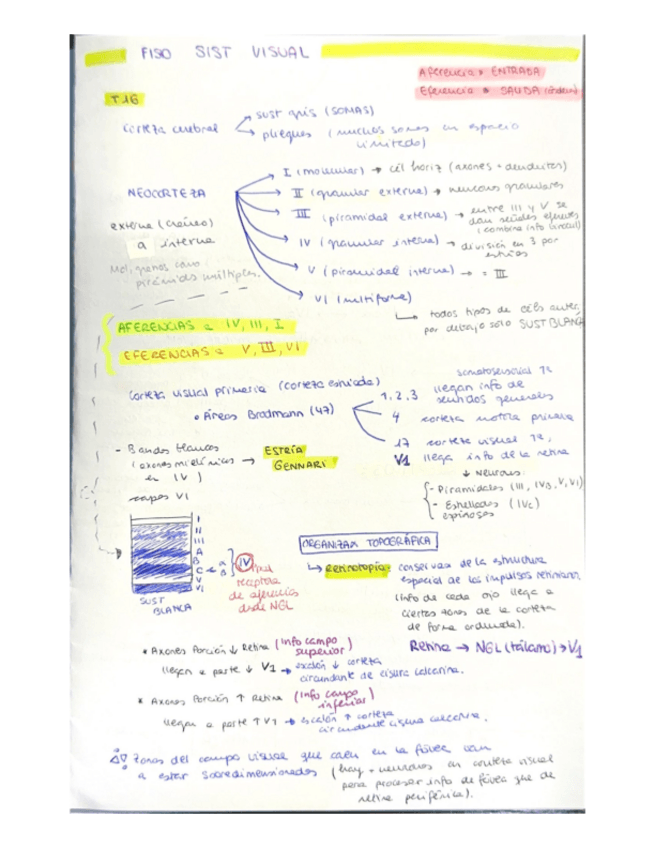 FISIO SIST VISUAL
Aferencia → ENTRADA
Eferencia → SALIDA
T.16
Corteza cerebral
sust gris (SOMAS)
pliegues (muchos somas en espacio
limitado)
NEOCORTEZA
externa (cráneo)
a interna
I (molecular) → cél horiz (axones + dendritas)
II (granular externa) → neuronas granulares
III (piramidal externa) → entre III y V se
dan señales eferentes
(combina info
IV (granular interna) → división en 3 por
estrías
V (piramidal interna) → = III
VI (multiforme)
todos tipos de céls anter,
por debajo solo SUST BLANCA
pirámides múltiples.
AFERENCIAS a IV, III, I
EFERENCIAS a V, III, VI
Corteza visual primaria (corteza estriada)
• Áreas Brodmann (47)
somatosensorial 1ª
1, 2, 3 llegan info de
sentidos generales
4 corteza motora primaria
17 corteza visual 1ª,
V1 llega info de la retina
↓ Neuronas:
- Piramidales (III, IVB, V, VI)
- Estrelladas (IVc)
espinosas
- Bandas blancas
(axones mielínicos
en IV)
→ ESTRÍA
GENNARI
capas VI
I
II
III
A
B
C ← α
β
IV
V
VI
SUST
BLANCA
receptora
de aferencias
desde NGL
ORGANIZAZ TOPOGRÁFICA
↳ Retinotopía: conservaz de la estructura
espacial de los impulsos retinianos
(info de cada ojo llega a
ciertas zonas de la corteza
de forma ordenada).
Retina → NGL (tálamo) → V1
* Axones Porción ↓ Retina (Info campo
superior)
llegan a parte ↓ V1 → escalón ↓ corteza
circundante de cisura calcarina.
* Axones Porción ↑ Retina (Info campo
inferior)
llegan a parte ↑ V1 → escalón ↑ corteza
circundante cisura calcarina.
Zonas del campo visual que caen en la fóvea van
a estar sobredimensionadas (hay + neuronas en corteza visual
para procesar info de fóvea que de
retina periférica).